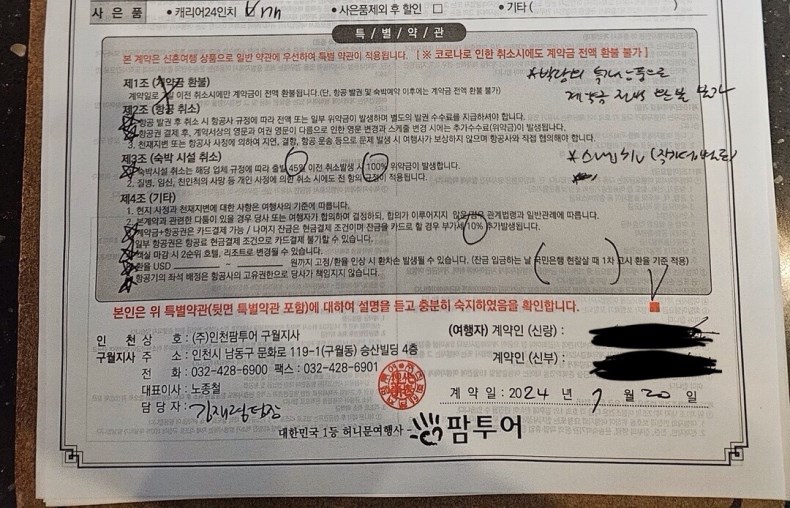 사 은 품 • 캐리어24인치 • 사은품제외 후 할인 □ • 기타 (
특 / 별 / 약 / 관
본 계약은 신혼여행 상품으로 일반 약관에 우선하여 특별 약관이 적용됩니다. [ ※ 코로나로 인한 취소시에도 계약금 전액 환불 불가 ]
제1조 (계약금 환불)
계약일로 이전 취소시에만 계약금이 전액 환불됩니다.(단, 항공 발권 및 숙박예약 이후에는 계약금 전액 환불 불가)
*박람회 특가상품으로
계약금 전액 환불 불가
제2조 (항공 취소)
항공 발권 후 취소 시 항공사 규정에 따라 전액 또는 일부 위약금이 발생하며 별도의 발권 수수료를 지급하셔야 합니다.
항공권 결제 후, 계약서상의 영문과 여권 영문이 다름으로 인한 영문 변경과 스케줄 변경 시에는 추가수수료(위약금)이 발생됩니다.
3. 천재지변 또는 항공사 사정에 의하여 지연, 결항, 항공 운송 등으로 문제 발생 시 여행사가 보상하지 않으며 항공사와 직접 협의해야 합니다.
제3조 (숙박 시설 취소)
숙박시설 취소는 해당 업체 규정에 따라 출발 45일 이전 취소발생 시 100% 위약금이 발생합니다.
2. 질병, 임신, 친인척의 사망 등 개인 사정에 의한 취소 시에도 전 항의 규정이 적용됩니다.
제4조 (기타)
1. 현지 사정과 천재지변에 대한 사항은 여행사의 기준에 따릅니다.
2. 본계약과 관련한 다툼이 있을 경우 당사 또는 여행자가 합의하여 결정하되, 합의가 이루어지지 않을 경우 관계법령과 일반관례에 따릅니다.
계약금+항공권은 카드결제 가능 / 나머지 잔금은 현금결제 조건이며 잔금을 카드로 할 경우 부가세 10% 추가발생됩니다.
일부 항공권은 항공료 현금결제 조건으로 카드결제 불가할 수 있습니다.
객실 마감 시 2순위 호텔, 리조트로 변경될 수 있습니다.
환율 USD 원까지 고정/환율 인상 시 환차손 발생될 수 있습니다. (잔금 입금하는 날 국민은행 현찰살 때 1차 고시 환율 기준 적용)
항공기의 좌석 배정은 항공사의 고유권한으로 당사가 책임지지 않습니다.
본인은 위 특별약관(뒷면 특별약관 포함)에 대하여 설명을 듣고 충분히 숙지하였음을 확인합니다.
인 천 상 호 : (주)인천팜투어 구월지사
구월지사 주 소 : 인천시 남동구 문화로 119-1(구월동) 승산빌딩 4층
전 화 : 032-428-6900 팩스 : 032-428-6901
대표이사 : 노종철
담 당 자 :
(여행자) 계약인 (신랑) :
계약인 (신부) :
계 약 일 : 2024 년 7 월 20 일
대한민국 1등 허니문여행사 - 팜투어